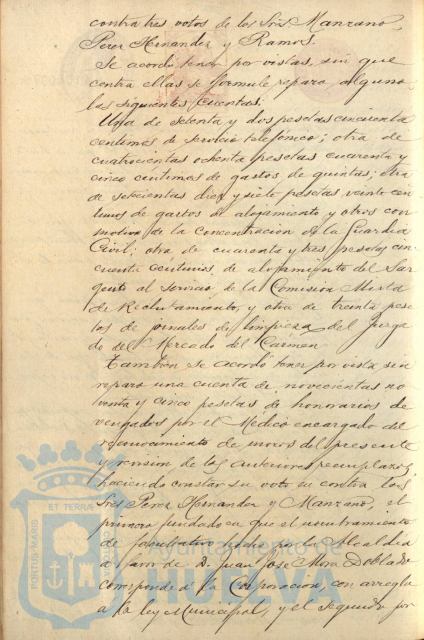 contra tres votos de los Sres Manzano,
Perez Hernandez y Ramos.
Se acordó tener por vistas, sin que
contra ellas se formule reparo alguno
las siguientes cuentas:
Una de setenta y dos pesetas cincuenta
centimos de servicio telefonico; otra de
cuatrocientas ochenta pesetas cuarenta y
cinco centimos de gastos de quintas; otra
de setecientas diez y siete pesetas veinte cen
timos de gastos de alojamiento y otros con
motivo de la Concentración de la Guardia
Civil; otra de cuarenta y tres pesetas cin
cuenta centimos, de alojamiento del Sar
gento al servicio de la Comision Mixta
de Reclutamiento, y otra de treinta pese
tas de jornales de limpieza del Juzga
do del Mercado del Carmen
Tambien se acordó tener por vista sin
reparo una cuenta de novecientas no
venta y cinco pesetas de honorarios de
vengados por el Médico encargado del
reconocimiento de mozos del presente
y revision de los anteriores reemplazos,
haciendo constar su voto en contra los
Sres Perez Hernandez y Manzano, el
primero fundado en que el nombramiento
de facultativo hecho por la Alcaldia
a favor de D. Juan José Mora Doblado
corresponde á la Corporación, con arreglo
a la ley Municipal, y el segundo por
PORTUS MARIS
ET TERRÆ
Ayuntamiento de
HUELVA